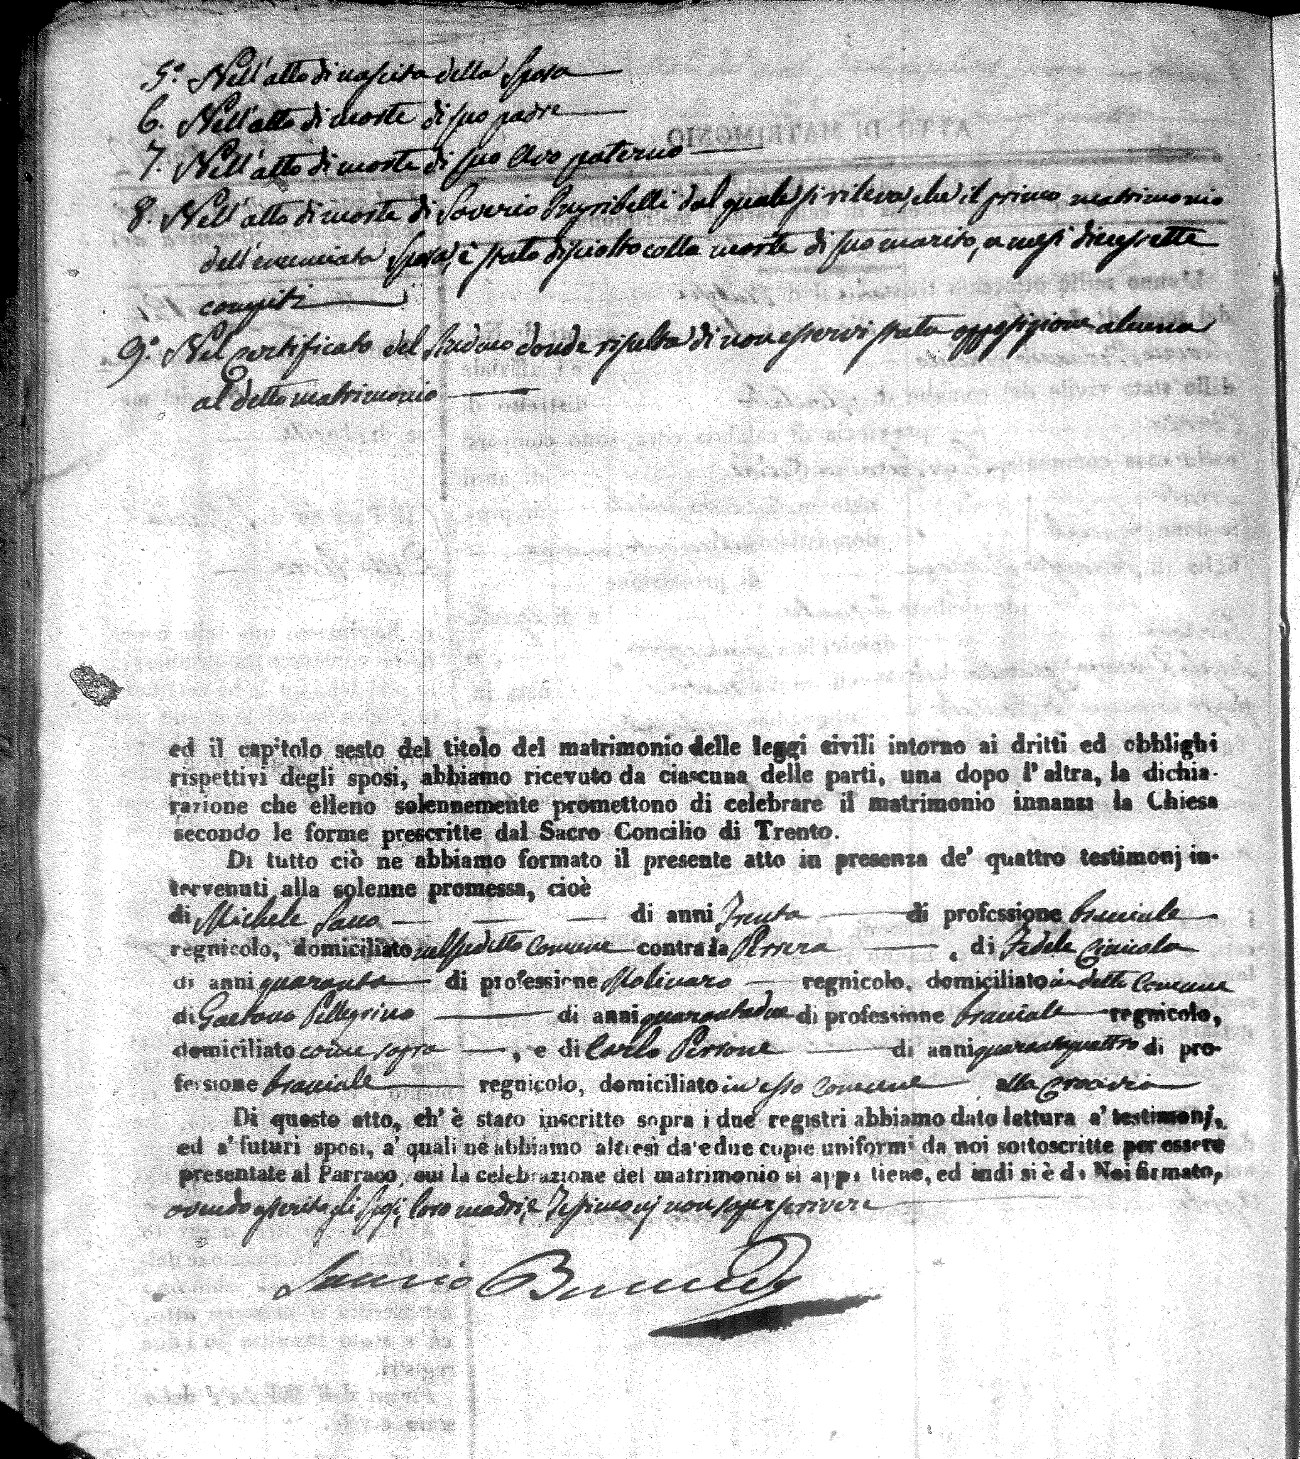 5.° Nell'atto di nascita della Sposa
6. Nell'atto di morte di suo padre
7. Nell'atto di morte di suo Avo paterno
8. Nell'atto di morte di Saverio dal quale si rileva, che il primo matrimonio
dell'enunciata Sposa, è stato disciolto colla morte di suo marito, a mesi diecessette
compiti
9.° Nel certificato del Sindaco donde risulta di non esservi stata opposizione alcuna
al detto matrimonio
ed il capitolo sesto del titolo del matrimonio delle leggi civili intorno ai dritti ed obblighi
rispettivi degli sposi, abbiamo ricevuto da ciascuna delle parti, una dopo l'altra, la dichia-
razione che elleno solennemente promettono di celebrare il matrimonio innanzi la Chiesa
secondo le forme prescritte dal Sacro Concilio di Trento.
Di tutto ciò ne abbiamo formato il presente atto in presenza de' quattro testimonj in-
tervenuti alla solenne promessa, cioè
di Michele Sacco di anni Trenta di professione bracciale
regnicolo, domiciliato nel suddetto Comune contrada , di Fedele
di anni quaranta di professione Molinaro regnicolo, domiciliato in detto Comune
di Gaetano Pellegrino di anni quarantadue di professione bracciale regnicolo,
domiciliato come sopra , e di Carlo Perrone di anni quarantaquattro di pro-
fessione bracciale regnicolo, domiciliato in esso Comune alla
Di questo atto, ch' è stato inscritto sopra i due registri abbiamo dato lettura a' testimonj,
ed a' futuri sposi, a' quali ne abbiamo altresì date due copie uniformi da noi sottoscritte per essere
presentate al Parroco, cui la celebrazione del matrimonio si appartiene, ed indi si è da Noi firmato,
avendo asserito gli Sposi, loro madri, e Testimonj non saper scrivere